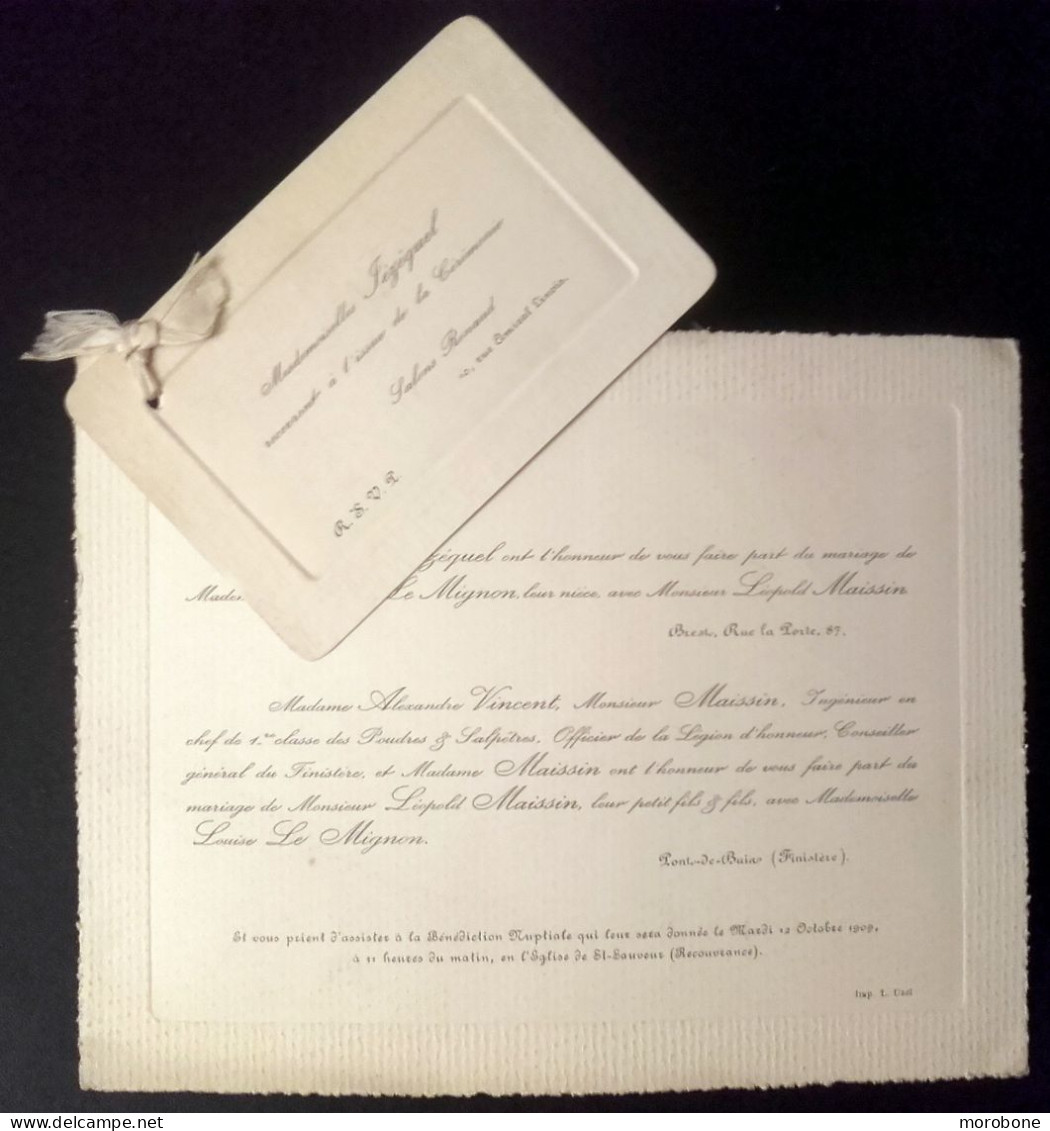 Mesdemoiselles Jézéquel
recevront à l'issue de la Cérémonie
Salons Renaud
rue
R. S. V. P.
zéquel ont l'honneur de vous faire part du mariage de
Madem Le Mignon, leur nièce, avec Monsieur Léopold Maissin
Brest, Rue la Porte, 87.
Madame Alexandre Vincent, Monsieur Maissin, Ingénieur en
chef de 1.re classe des Poudres & Salpêtres, Officier de la Légion d'honneur, Conseiller
général du Finistère, et Madame Maissin ont l'honneur de vous faire part du
mariage de Monsieur Léopold Maissin, leur petit fils & fils, avec Mademoiselle
Louise Le Mignon.
Pont-de-Buis (Finistère).
Et vous prient d'assister à la Bénédiction Nuptiale qui leur sera donnée le Mardi 12 Octobre 1909,
à 11 heures du matin, en l'Église de St-Sauveur (Recouvrance).
Imp. L.
morobone